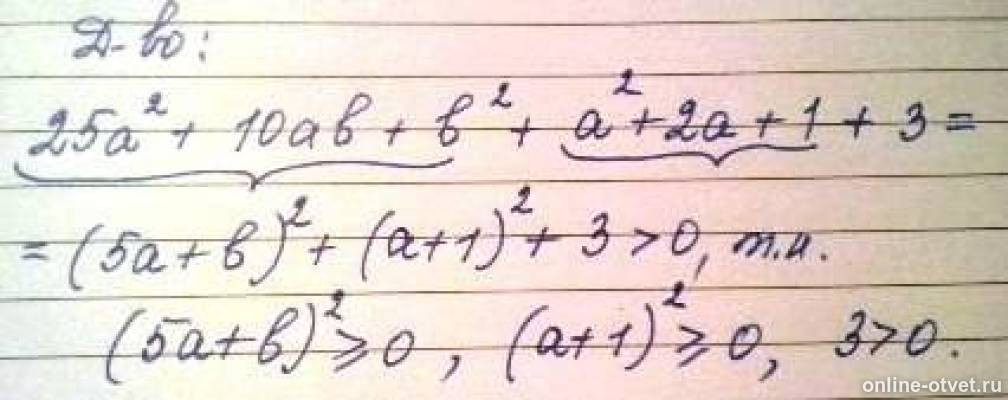 Д-во:
25a² + 10ab + b² + a² + 2a + 1 + 3 =
= (5a + b)² + (a+1)² + 3 > 0, т.к.
(5a+b)² ⩾ 0, (a+1)² ⩾ 0, 3>0.
online-otvet.ru